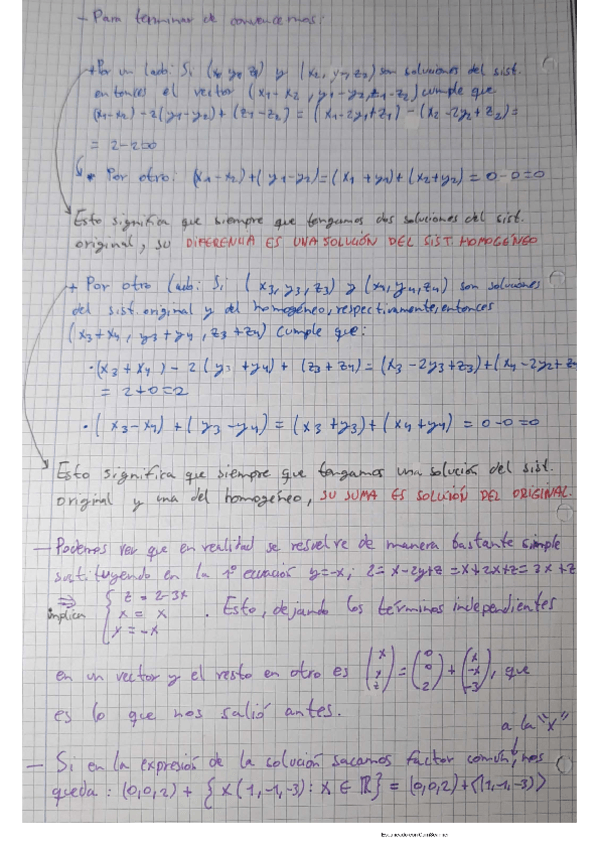 - Para terminar de convencernos:
+ Por un lado: Si (x₁, y₁, z₁) y (x₂, y₂, z₂) son soluciones del sist.
entonces el vector (x₁-x₂, y₁-y₂, z₁-z₂) cumple que
(x₁-x₂) - 2(y₁-y₂) + (z₁-z₂) = (x₁-2y₁+z₁) - (x₂-2y₂+z₂) =
= 2-2=0
• Por otro: (x₁-x₂)+(y₁-y₂)=(x₁+y₁)+(x₂+y₂)=0-0=0
Esto significa que siempre que tengamos dos soluciones del sist.
original, su DIFERENCIA ES UNA SOLUCIÓN DEL SIST HOMOGÉNEO
+ Por otro lado: Si (x₃, y₃, z₃) y (x₄, y₄, z₄) son soluciones
del sist. original y del homogéneo, respectivamente, entonces
(x₃+x₄, y₃+y₄, z₃+z₄) cumple que:
• (x₃+x₄) - 2(y₃+y₄) + (z₃+z₄) = (x₃-2y₃+z₃)+(x₄-2y₂+z₄
= 2+0=2
• (x₃-x₄)+(y₃-y₄) = (x₃+y₃)+(x₄+y₄) = 0-0=0
Esto significa que siempre que tengamos una solución del sist.
original y una del homogéneo, SU SUMA ES SOLUCIÓN DEL ORIGINAL.
- Podemos ver que en realidad se resuelve de manera bastante simple
sustituyendo en la 1ª ecuación y=-x; 2=x-2y+z=x+2x+z=3x+z
⇒ implica { z = 2-3x
x = x
y = -x
. Esto, dejando los términos independientes
en un vector y el resto en otro es (x y z) = (0 0 2) + (x -x -3), que
es lo que nos salió antes.
a la "x"
- Si en la expresión de la solución sacamos factor común, nos
queda: (0,0,2) + {x(1,-1,-3): x ∈ ℝ} = (0,0,2)+⟨(1,-1,-3)⟩
Escaneado con CamScanner